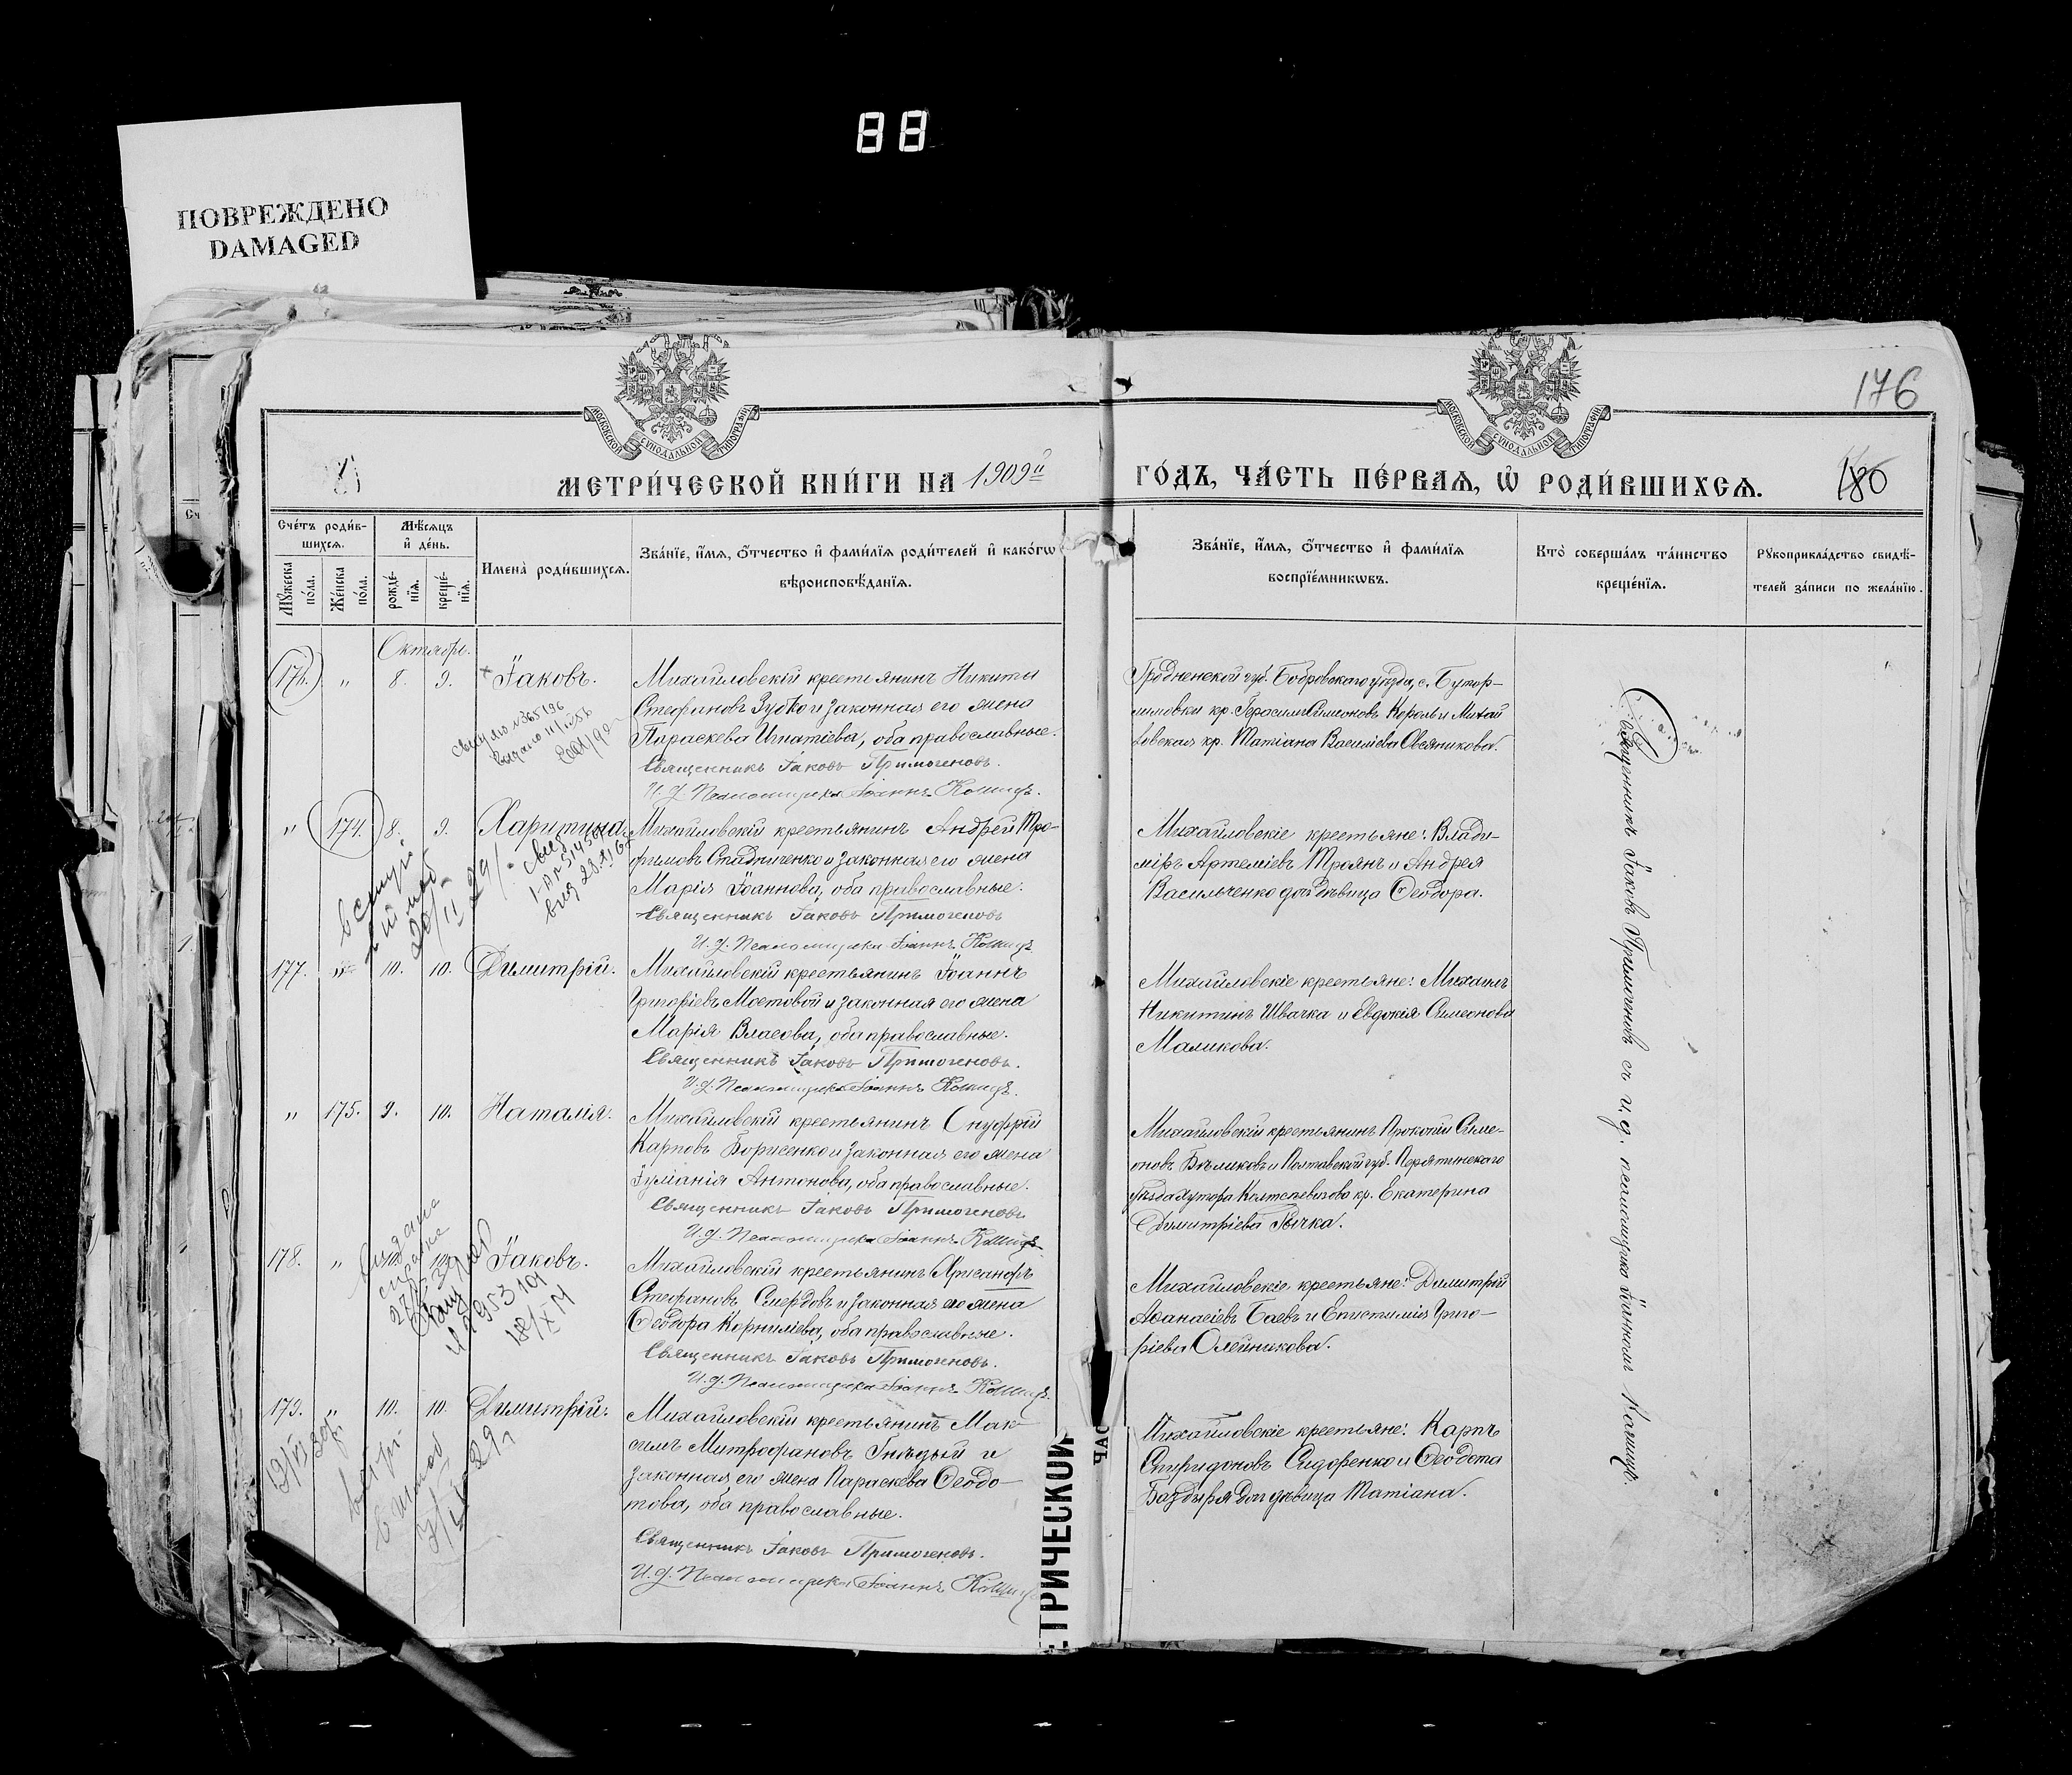 88
ПОВРЕЖДЕНО
DAMAGED
176
МОСКОВСКОЙ СѴНОДАЛЬНОЙ ТИПОГРАФІИ
МОСКОВСКОЙ СѴНОДАЛЬНОЙ ТИПОГРАФІИ
МЕТРИ́ЧЕСКОЙ КНИ́ГИ НА 1909й
ГО́ДЪ, ЧА́СТЬ ПЕ́РВАЯ, Ѡ҆ РОДИ́ВШИХСЯ.
180
Сче́тъ роди́в-
шихся.
Мꙋ́жеска по́ла.
Же́нска по́ла.
Мѣ́сяцъ
и҆ де́нь.
рожде́-
нїя.
креще́-
нїя.
Имена̀ роди́вшихся.
Зва́нїе, и҆́мя, ѻ҆́тчество и҆ фами́лїя роди́телей и҆ како́гѡ
вѣроисповѣ́данїя.
Зва́нїе, и҆́мя, ѻ҆́тчество и҆ фами́лїя
воспрїе́мникѡвъ.
Кто̀ соверша́лъ та́инство
креще́нїя.
Рꙋкоприкла́дство свидѣ́-
телей за́писи по жела́нїю.
Октябрь.
176. " 8. 9. Іаковъ.
Михайловскій крестьянинъ Никита
Стефановъ Зубко и законная его жена
Параскева Игнатіева, оба православные.
Священникъ Іаковъ Примогеновъ.
И. д. Псаломщика Іоаннъ Кошицъ.
Гродненской губ. Бобровскаго уѣзда, с.
кр. Герасимъ Симеоновъ Король и Михай
ловская кр. Матіана Василіева Овсяникова.
" 174. 8. 9. Харитина
Михайловскій крестьянинъ Андрей Тро-
фимовъ Стадниченко и законная его жена
Марія Іоаннова, оба православные.
Священникъ Іаковъ Примогеновъ
И. д. Псаломщика Іоаннъ Кошицъ
Михайловскіе крестьяне: Влади-
міръ Артеміевъ Троянъ и Андрея
Васильченко дочь дѣвица Ѳеодора.
177. " 10. 10. Димитрій.
Михайловскій крестьянинъ Іоаннъ
Григоріевъ Мостовой и законная его жена
Марія Власова, оба православные.
Священникъ Іаковъ Примогеновъ.
И. д. Псаломщика Іоаннъ Кошицъ.
Михайловскіе крестьяне: Михаилъ
Никитинъ Швачка и Евдокія Симеонова
Маликова.
" 175. 9. 10. Наталія.
Михайловскій крестьянинъ Онуфрій
Карповъ Борисенко и законная его жена
Іуліанія Антонова, оба православные.
Священникъ Іаковъ Примогеновъ
И. д. Псаломщика Іоаннъ Кошицъ
Михайловскій крестьянинъ Прокопій Симе-
оновъ Бѣликовъ и Полтавской губ. Пирятинскаго
уѣзда хутора кр. Екатерина
Димитріева Рычка.
178. " 10. 10. Іаковъ.
Михайловскій крестьянинъ Хрисанфъ
Стефановъ Смердовъ и законная его жена
Ѳеодора Корниліева, оба православные.
Священникъ Іаковъ Примогеновъ.
И. д. Псаломщика Іоаннъ Кошицъ.
Михайловскіе крестьяне: Димитрій
Аѳанасіевъ Баевъ и Епистимія Григо-
ріева Олейникова.
179. " 10. 10. Димитрій.
Михайловскій крестьянинъ Мак-
симъ Митрофановъ Гнѣдый и
законная его жена Параскева Ѳеодо-
това, оба православные.
Священникъ Іаковъ Примогеновъ.
И. д. Псаломщика Іоаннъ Кошицъ
Михайловскіе крестьяне: Карпъ
Спиридоновъ Сидоренко и Ѳеодота
Баздыря дочь дѣвица Матіана.
Священникъ Іаковъ Примогеновъ съ и. д. псаломщика Іоанномъ Кошицъ.
ЕТРИЧЕСКОЙ
ЧАС